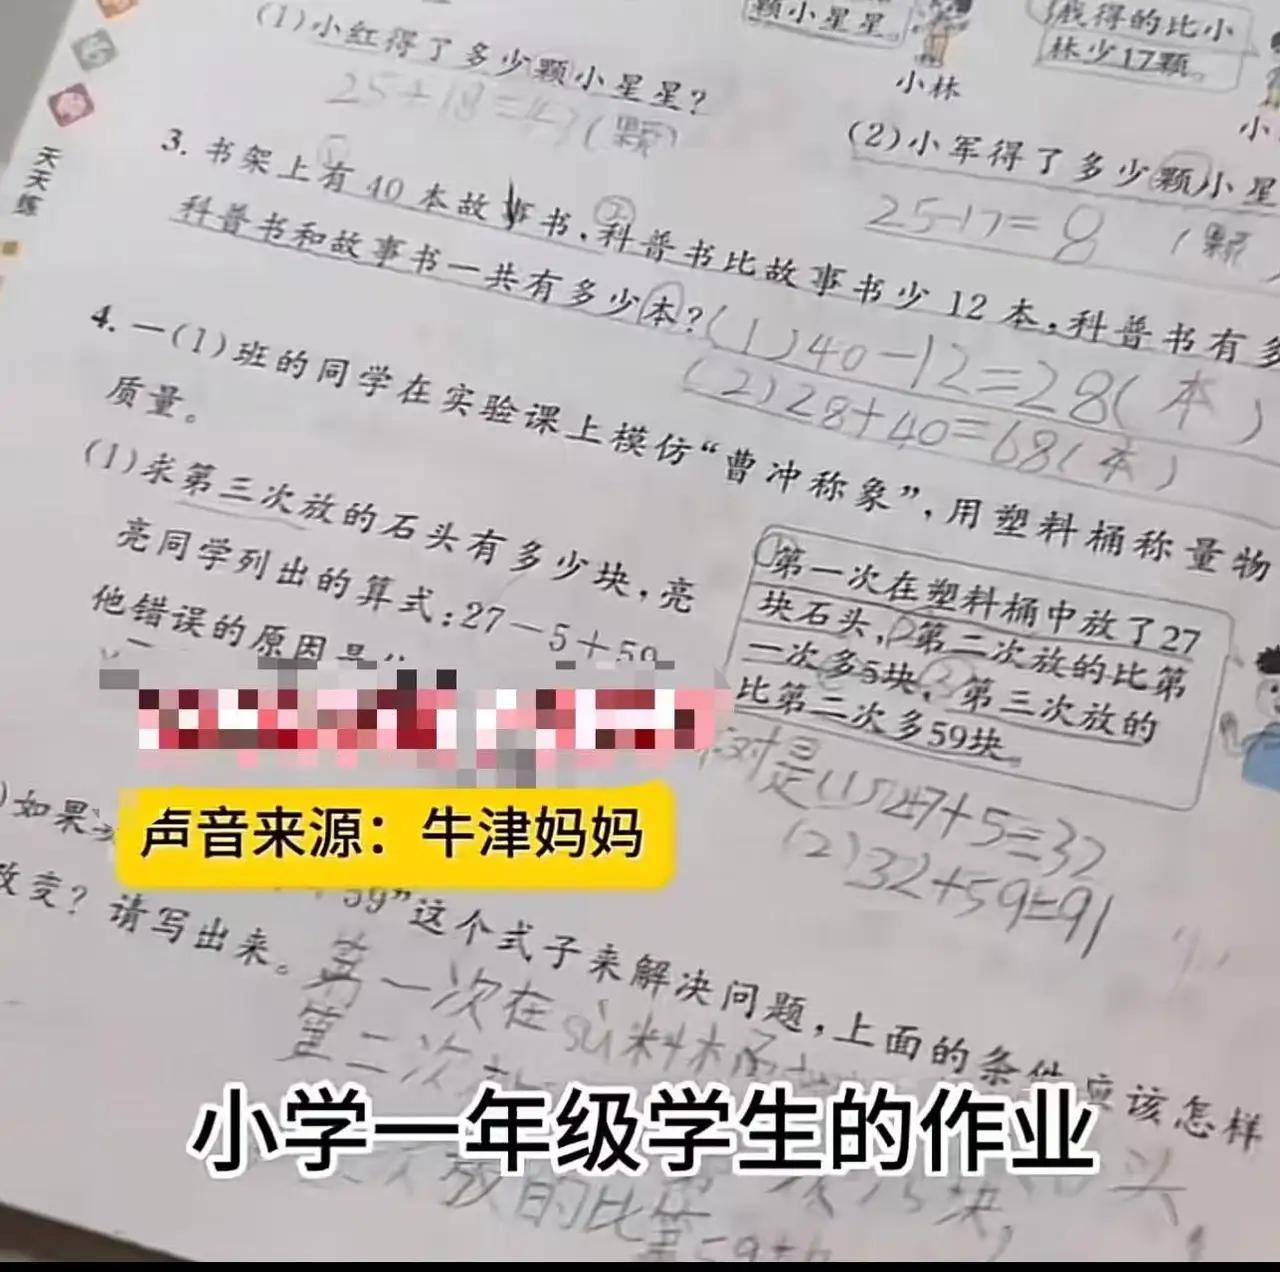 颗小星星。
我得的比小
林少17颗。
小林
(1)小红得了多少颗小星星?
25+18=43(颗)
(2)小军得了多少颗小星
25-17=8
(颗
天天练
3. 书架上有 40 本故事书,科普书比故事书少 12 本,科普书有多
科普书和故事书一共有多少本?
(1)40-12=28(本)
(2)28+40=68(本)
4. 一(1)班的同学在实验课上模仿“曹冲称象”,用塑料桶称量物
质量。
(1)求第三次放的石头有多少块,亮
亮同学列出的算式:27-5+59
他错误的原因是
①第一次在塑料桶中放了27
块石头,②第二次放的比第
一次多5块,③第三次放的
比第二次多59块。
对是(1)27+5=32
(2)32+59=91
声音来源:牛津妈妈
)如果
59”这个式子来解决问题,上面的条件应该怎样
改变?请写出来。
第一次在sù料桶
第二次
小学一年级学生的作业
放的比第
块,
头,